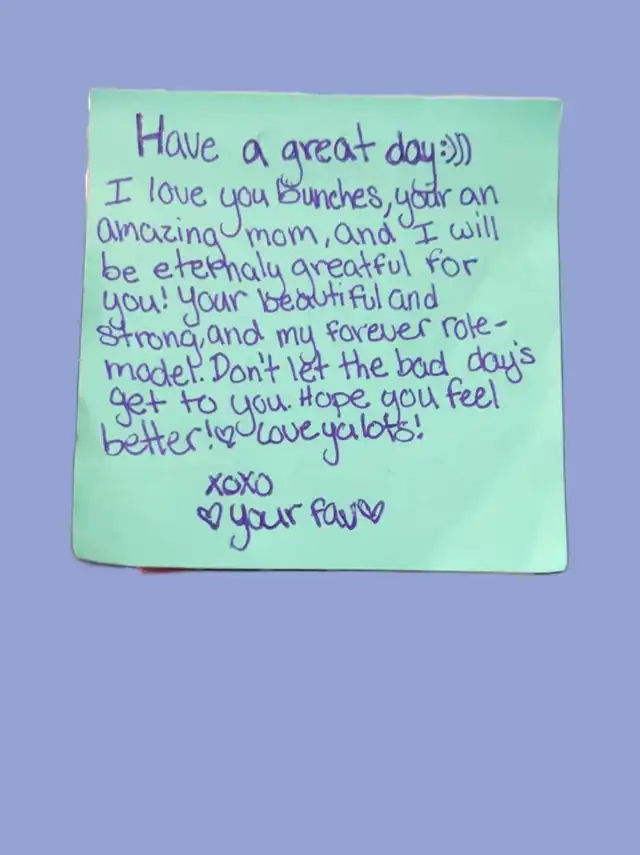 Have a great day:)))
I love you bunches, your an
amazing mom, and I will
be eternaly greatful for
you! Your beautiful and
strong, and my forever role-
model. Don't let the bad day's
get to you. Hope you feel
better!♡ Love ya lots!
XOXO
♡your fav♡